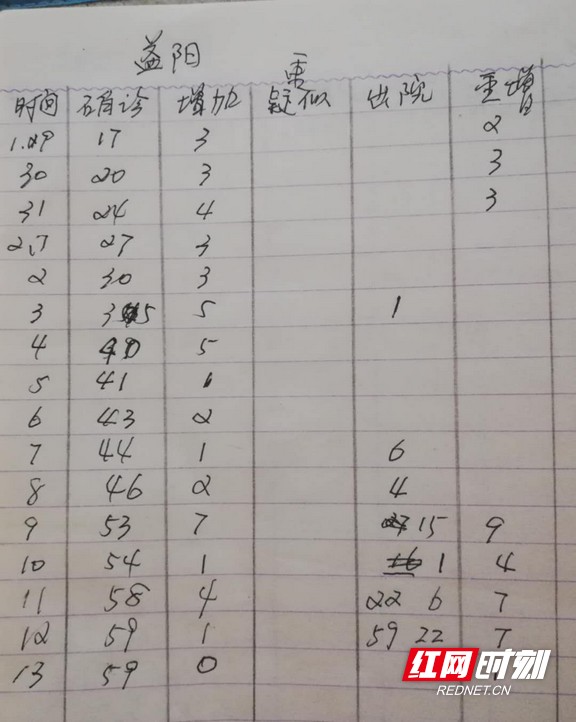 益阳
重
时间 确诊 增加 疑似 出院 重增
1.29 17 3 2
30 20 3 3
31 24 4 3
2.1 27 3
2 30 3
3 35 5 1
4 40 5
5 41 1
6 43 2
7 44 1 6
8 46 2 4
9 53 7 15 9
10 54 1 1 4
11 58 4 22 6 7
12 59 1 59 22 7
13 59 0
红网时刻
REDNET.CN